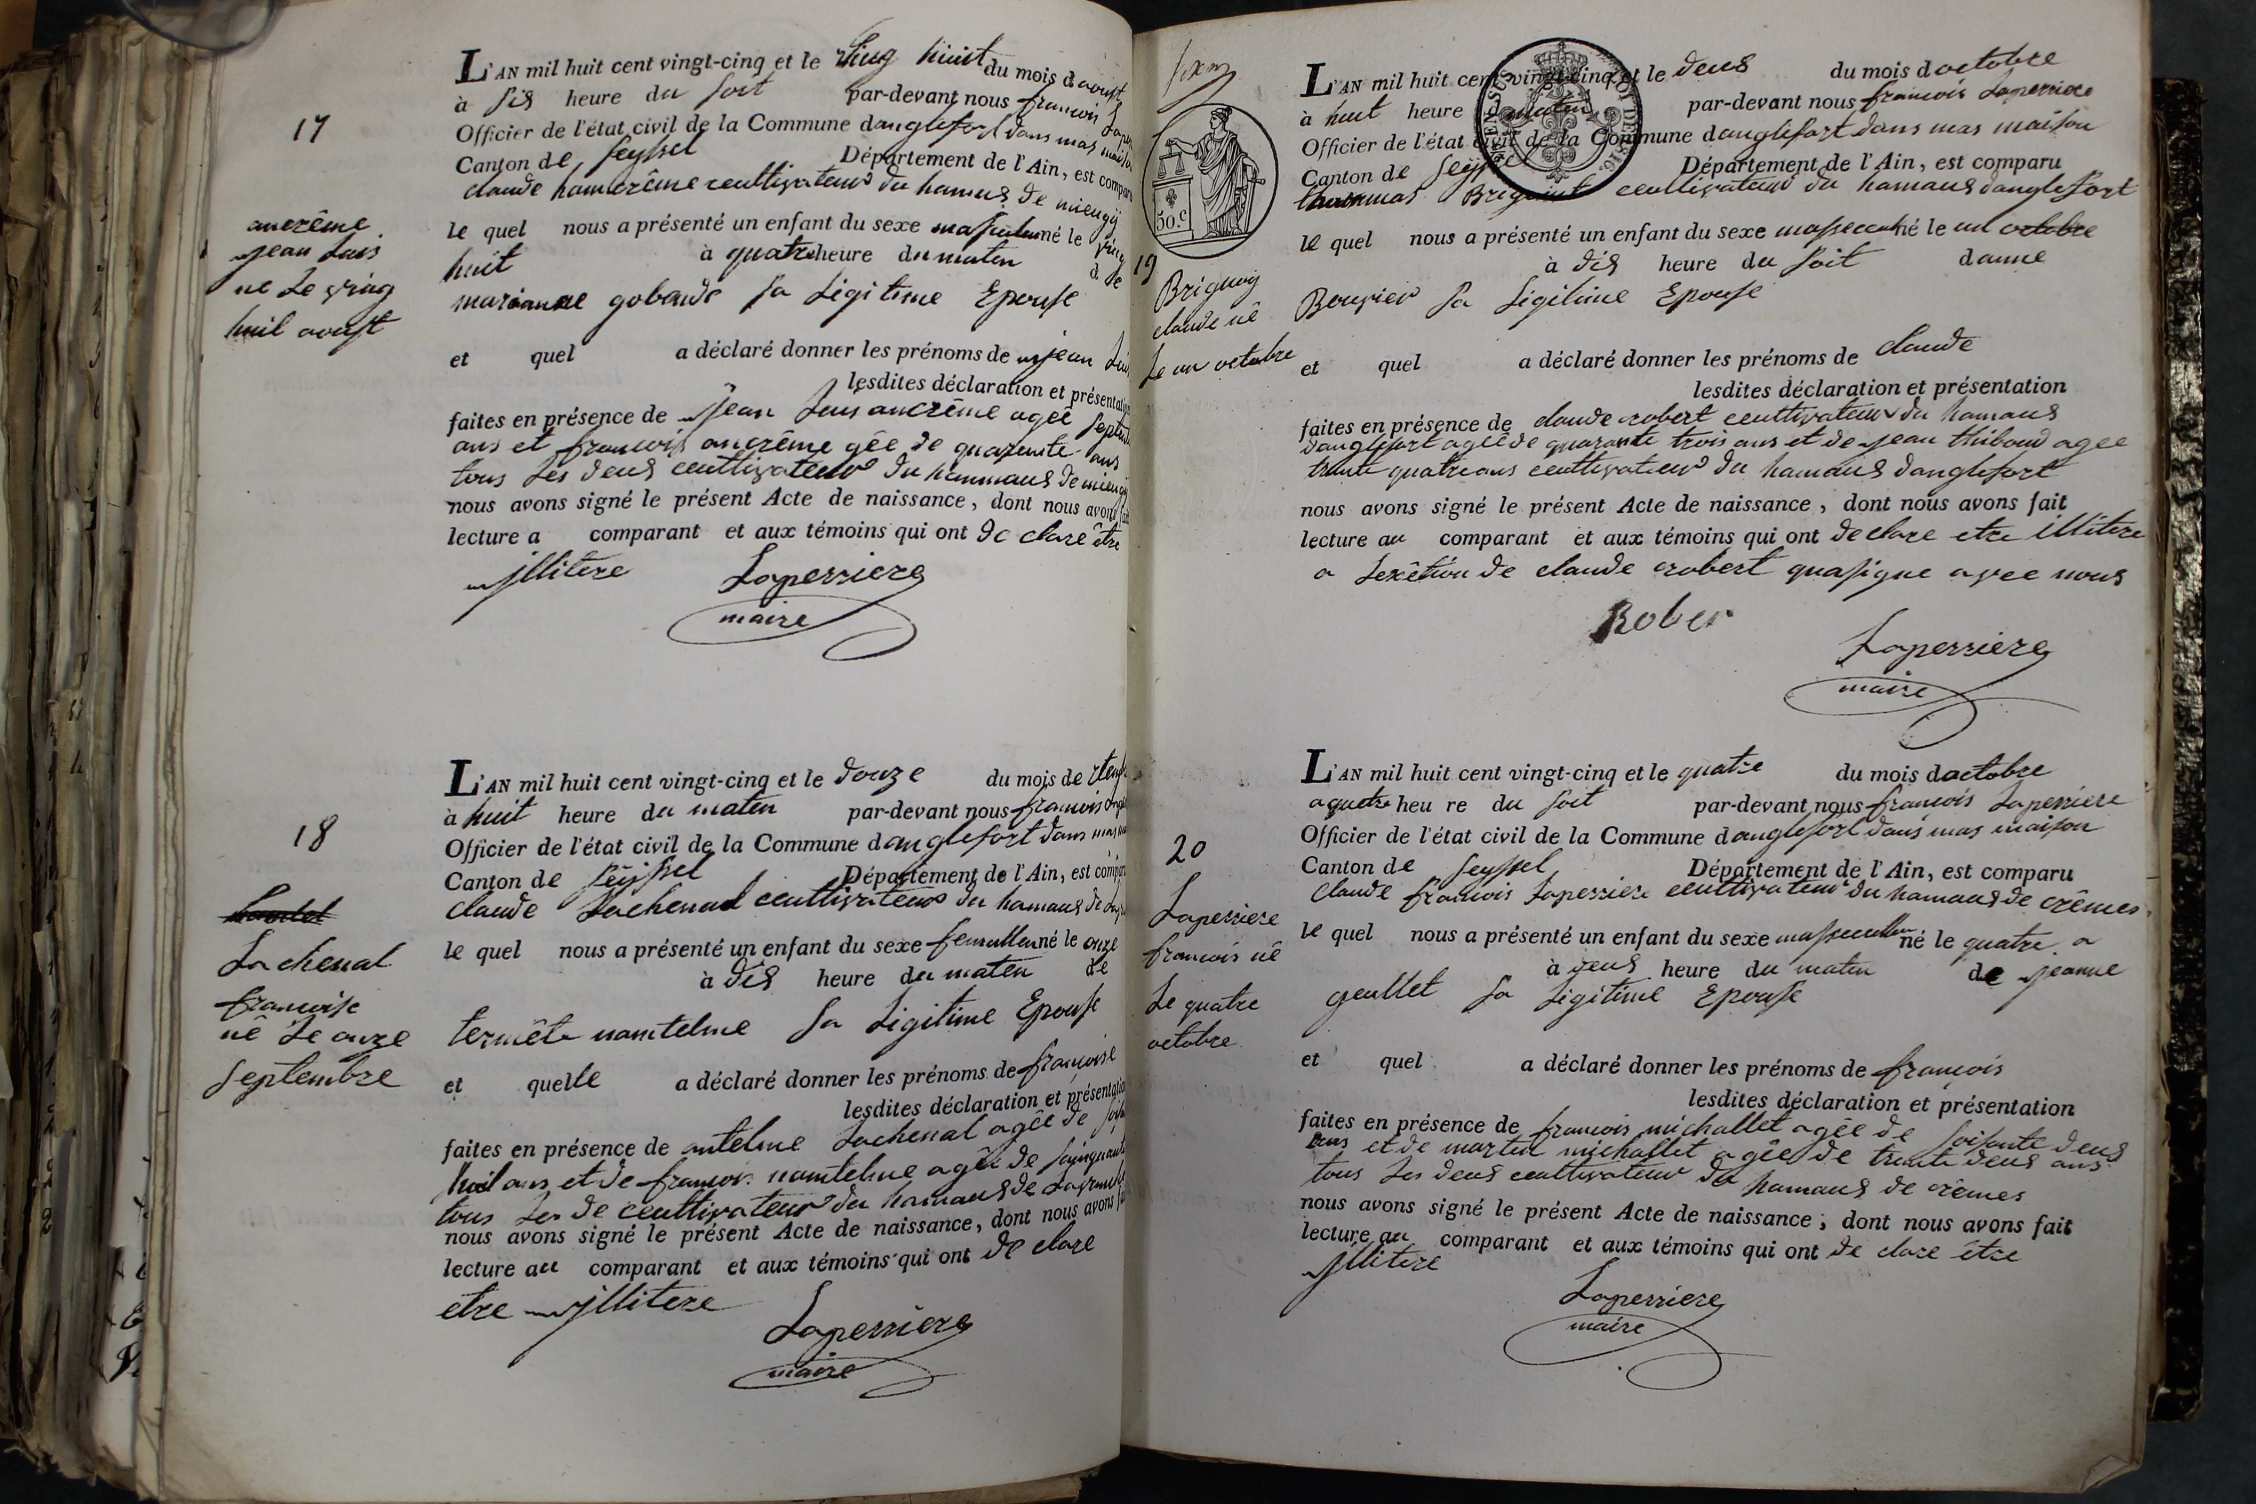 17
ancrême
jean Luis
né Le ving
huit aoust
L'AN mil huit cent vingt-cinq et le ving huit du mois daoust
à sis heure du soit par-devant nous francois
Officier de l'état civil de la Commune danglefort dans mas maison
Canton de Seyssel Département de l'Ain, est comparu
claude hancrême ceultivateur du hamus de mieugij
le quel nous a présenté un enfant du sexe né le ving
huit à quatre heure du maten de
marianne gobande sa Légitime Epouse
et quel a déclaré donner les prénoms de jean Luis
lesdites déclaration et présentation
faites en présence de jean Luis ancrême ageê
ans et francois ancrême gêe de quarente ans
tous les deus ceultivateur du hammaus de mieugij
nous avons signé le présent Acte de naissance, dont nous avons fait
lecture a comparant et aux témoins qui ont de clare être
jllitere Laperriere
maire
18
Lachenal
francoise
nê Le onze
septembre
L'AN mil huit cent vingt-cinq et le douze du mois de
à huit heure du maten par-devant nous francois
Officier de l'état civil de la Commune danglefort dans mas
Canton de Seijssel Département de l'Ain, est comparu
claude Lachenal ceultivateur du hamaus de
le quel nous a présenté un enfant du sexe né le onze
à dis heure du maten de
namtelme sa Légitime Epouse
et quelle a déclaré donner les prénoms de françoise
lesdites déclaration et présentation
faites en présence de antelme Lachenal agêe de
huit ans et de francois namtelme agêe de sainquante
tous Les de ceultivateur du hamaus de
nous avons signé le présent Acte de naissance, dont nous avons
lecture au comparant et aux témoins qui ont de clare
etre jllitere
Laperriere
maire
50.c
19
claude nê
Le un octobre
L'AN mil huit cent vingt-cinq et le deus du mois doctobre
à huit heure maten par-devant nous francois Laperriere
Officier de l'état civil de la Commune danglefort dans mas maison
Canton de Département de l'Ain, est comparu
ceultivateur du hamaus danglefort
le quel nous a présenté un enfant du sexe né le un octobre
à dis heure du soit danne
Bouvier sa Légitime Epouse
et quel a déclaré donner les prénoms de claude
lesdites déclaration et présentation
faites en présence de claude robert ceultivateur du hamaus
danglefort ageê de quarante trois ans et de jean thiboud agee
trante quatre ans ceultivateur du hamaus danglefort
nous avons signé le présent Acte de naissance, dont nous avons fait
lecture au comparant et aux témoins qui ont de clare etre illitere
a Lexêtion de claude robert quasigne avec nous
Rober
Laperriere
maire
20
Laperriere
francois nê
Le quatre
octobre
L'AN mil huit cent vingt-cinq et le quatre du mois doctobre
a quatre heu re du soit par-devant nous francois Laperriere
Officier de l'état civil de la Commune danglefort dans mas maison
Canton de Seyssel Département de l'Ain, est comparu
claude francois Laperriere ceultivateur du hamaus de crêmes
le quel nous a présenté un enfant du sexe né le quatre a
à heure du maten de jeanne
sa Légitime Epouse
et quel a déclaré donner les prénoms de françois
lesdites déclaration et présentation
faites en présence de francois michallet agêe de soisante deus
ans et de martin michallet agêe de trente deus ans
tous Les deus ceultivateur du hamaus de crêmes
nous avons signé le présent Acte de naissance, dont nous avons fait
lecture au comparant et aux témoins qui ont de clare etre
jllitere
Laperriere
maire